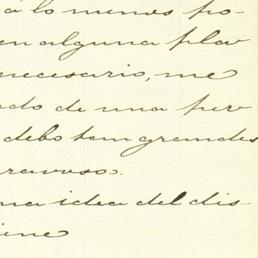 á lo menos po-
en alguna plav
necesario, me
ado de una per
debo tan grandes
ravoso.
na idea del dis-
iene